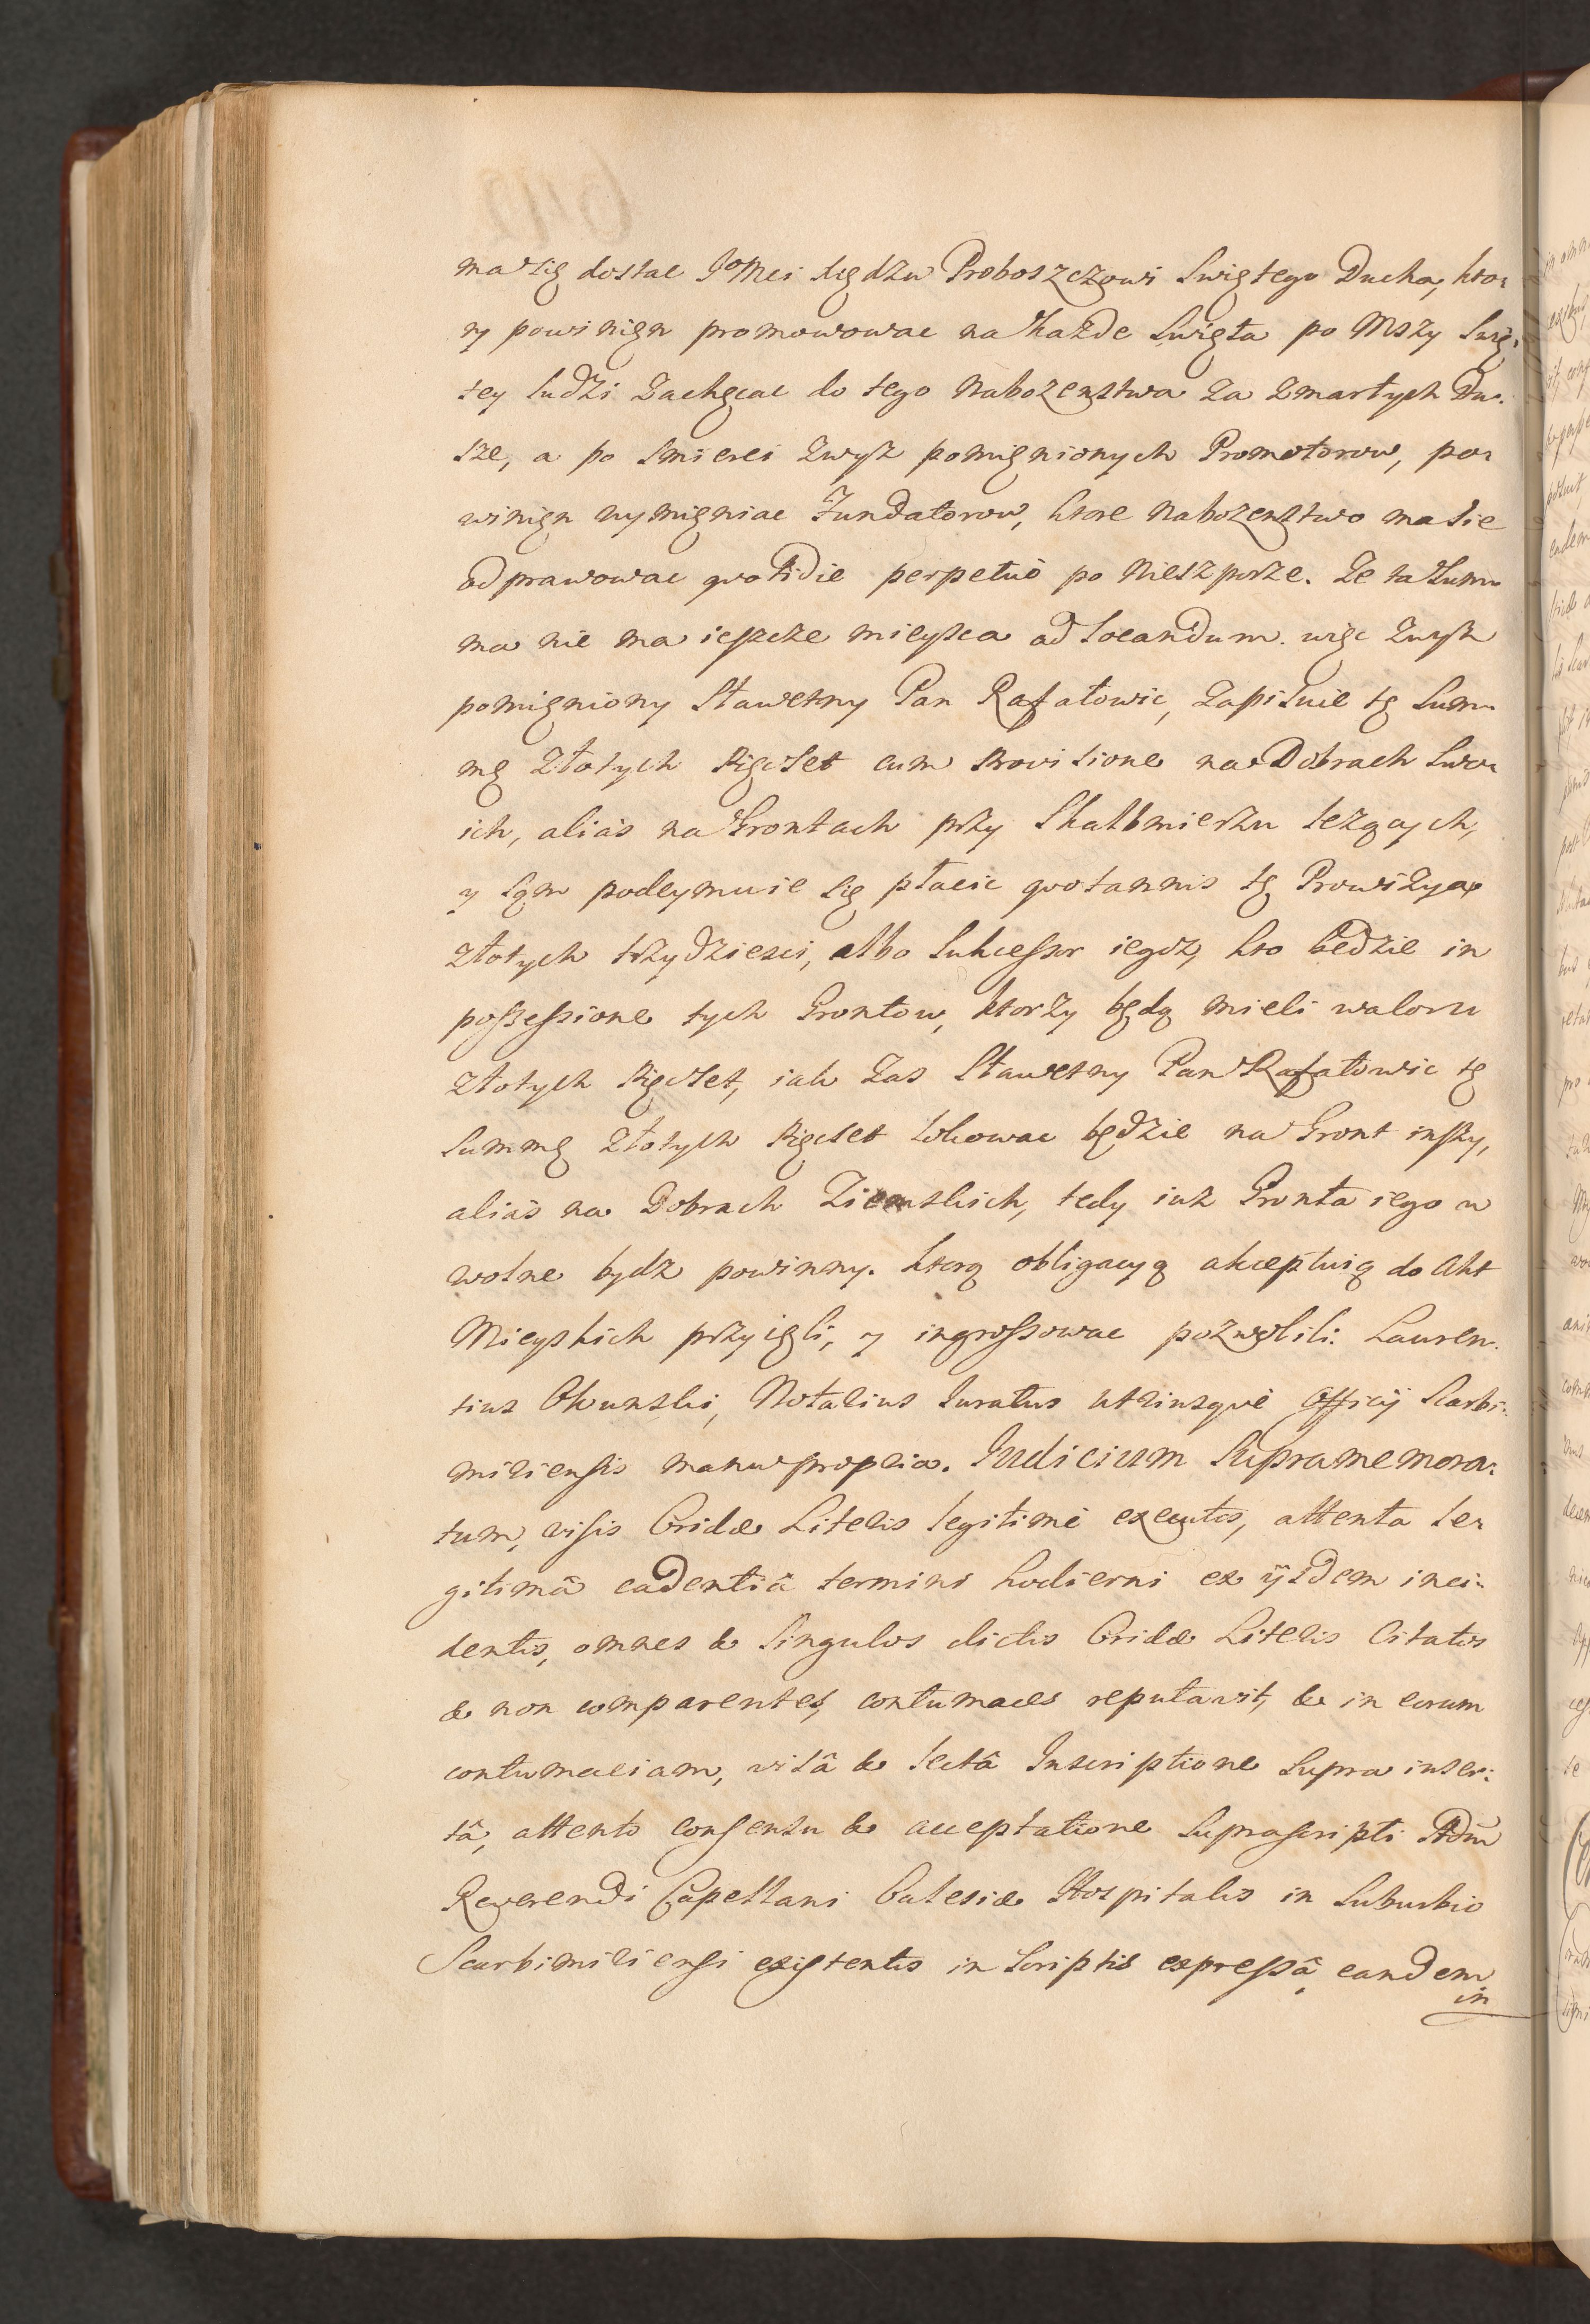 ma się dostac JoMci Xiędzu Proboszczowi Swiętego Ducha, kto-
ry powinięn promowowac na każde Swięta po Mszy Swię-
tey ludzi zachęcac do tego Nabozenstwa za zmarłych Du-
sze, a po smierci zwysz pomięnionych Promotorow, po-
winięn wymięniac Fundatorow, ktore Nabozenstwo ma sie
odprawowac quotidie perpetuò po Nieszporze. Ze ta Sum-
ma nie ma ieszcze mieysca ad locandum. więc zwysz
pomięniony Sławetny Pan Rafałowic, zapisuie tę Sum-
mę Złotych Pięcset cum Provisione na Dobrach Swo-
ich, aliàs na Grontach przy Skalbmierzu lezących,
y sąm podeymuie się płacic quotannis tę Prowizyą
złotych trzydziesci, albo Sukcessor iegoz, kto będzie in
possessione tych Grontow, ktorzy będą mieli waloru
złotych Pięcset, iak zas Sławetny Pan Rafałowic tę
Summę złotych Pięcset lokowac będzie na Gront inszy,
aliàs na Dobrach Ziemskich, tedy iuz Gronta iego u
wolne bydz powinny. ktorą obligacyą akceptuią do Akt
Mieyskich przyięli, y ingrossowac pozwolili. Lauren-
tius Okunski, Notarius Juratus utriusquè Officij Scarbi-
miriensis manu propria. Judicium Supramemora-
tum, visis Cridæ Literis legitimè executis, attenta le-
gitimâ cadentiâ termini hodierni ex ijsdem inci-
dentis, omnes & singulos dictis Cridæ Literis Citatos
& non comparentes, contumaces reputavit, & in eorum
contumaciam, visâ & lectâ Inscriptione supra inser-
tâ, attento consensu & acceptatione suprascripti Adm̄
Reverendi Capellani Ecclesiæ Hospitalis in Suburbio
Scarbimiriensi existentis in scriptis expressâ, eandem
in